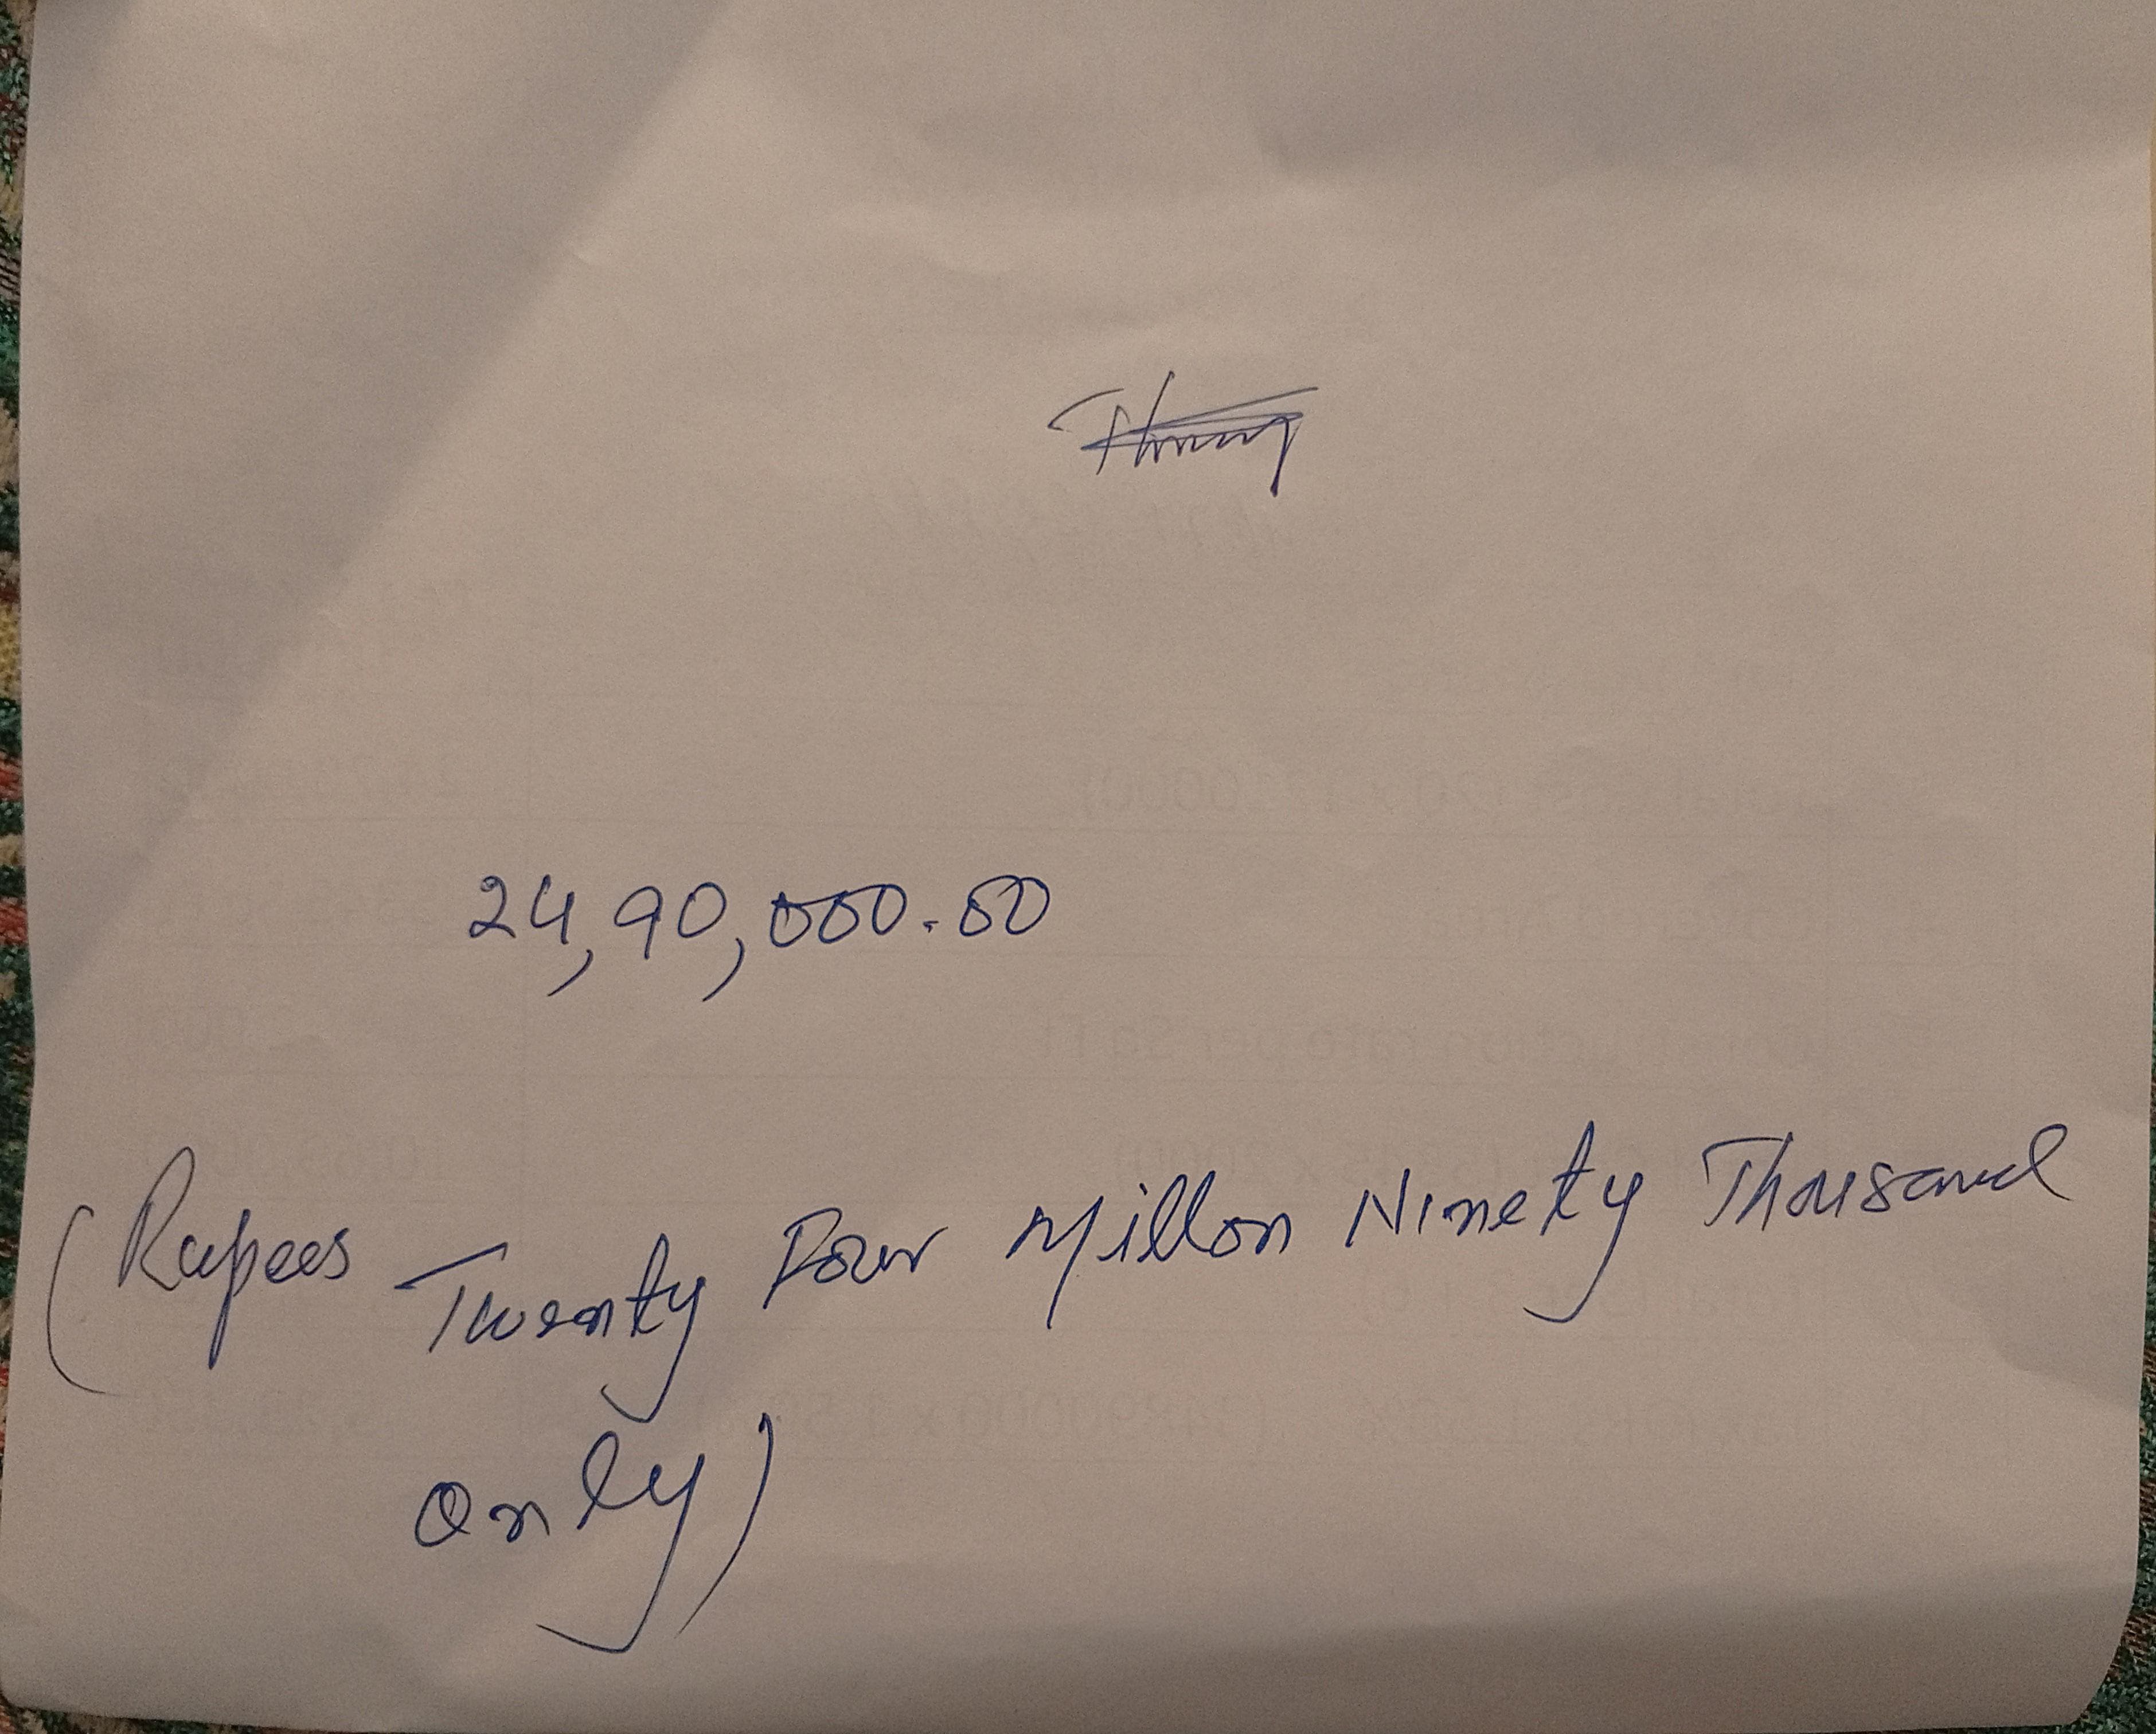 24,90,000.00
(Rupees Twenty Four Millon Ninety Thousand
only)